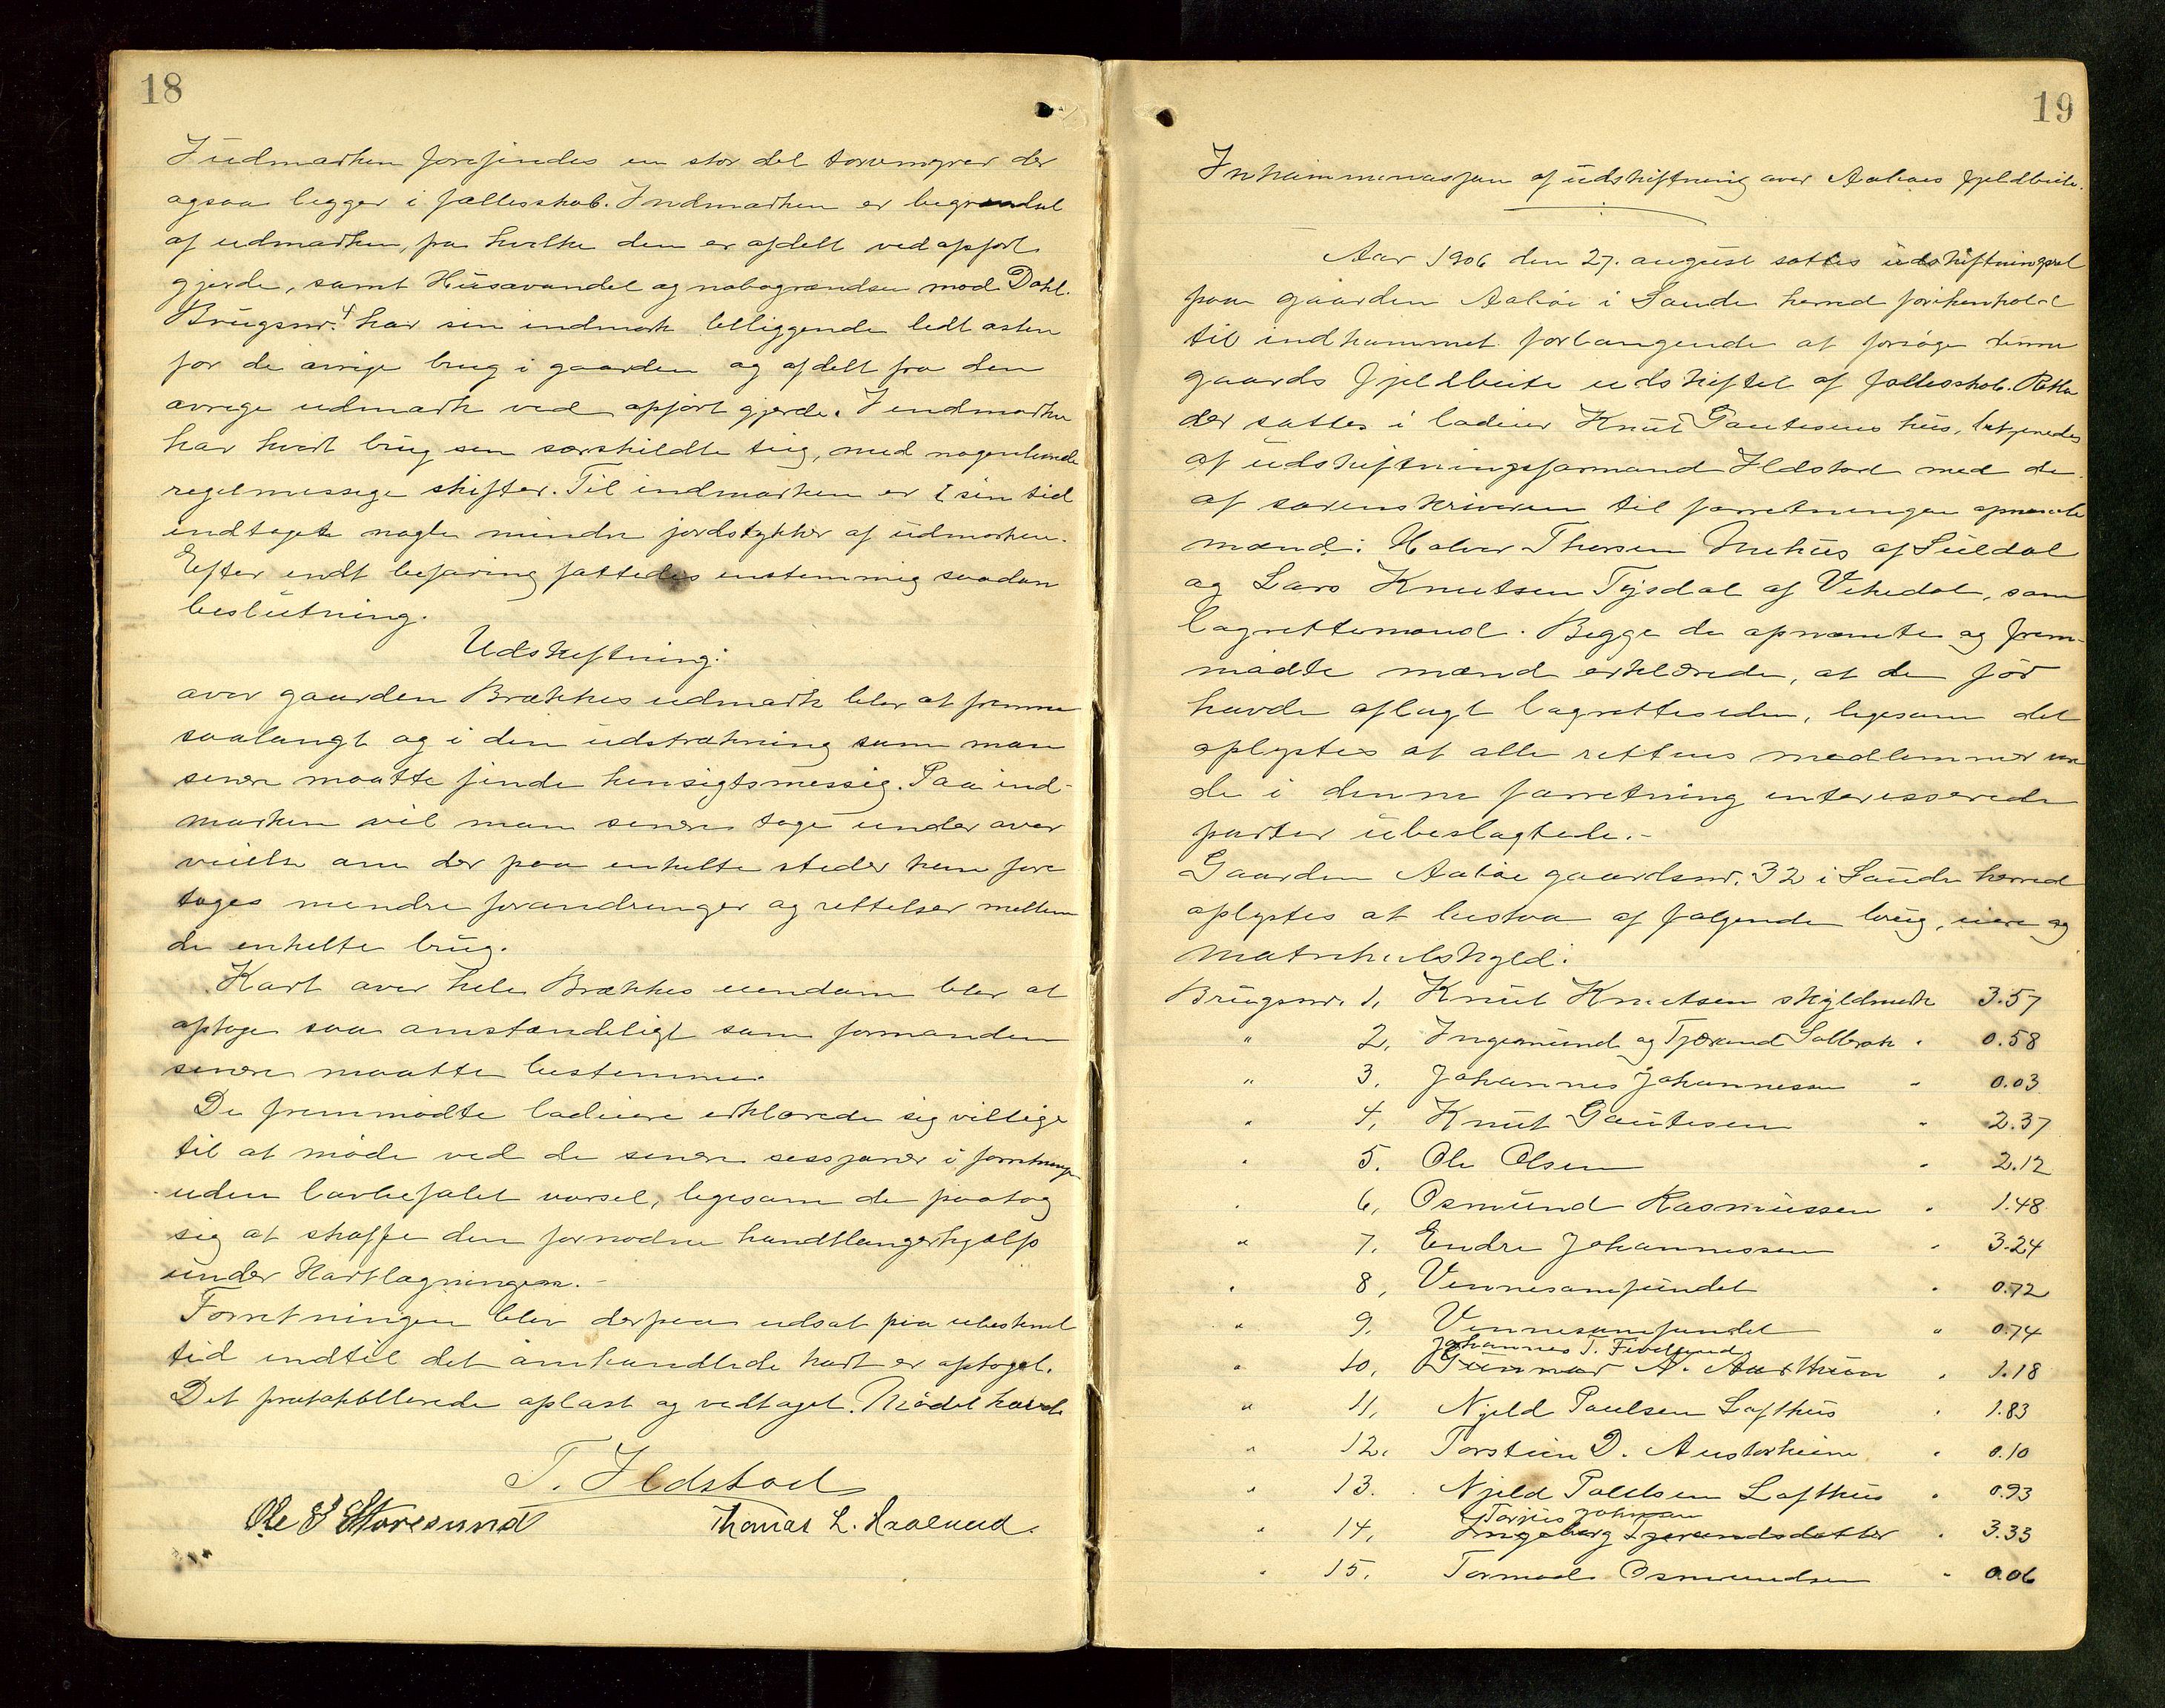 18
I udmarken forefindes en stor del torvmyrer der
ogsaa ligger i fællesskab. Indmarken er begrændset
af udmarken, fra hvilke den er afdelt ved opført
gjerde, samt Husavandet og nabogrændsen mod Dahl.
Brugsnr. 4 har sin indmark beliggende lidt østen
for de øvrige brug i gaarden og afdelt fra den
øvrege udmark ved opført gjerde. I indmarken
har hvert brug sin særskildte teig, med nogenlunde
regelmessige skifter. Til indmarken er i sin tid
indtaget nogle mindre jordstykker af udmarken.
Efter endt befaring fattedes enstemmig saadan
beslutning.
Udskiftning:
over gaarden Brækkes udmark blev at fremme
saalangt og i den udstrækning som man
senere maatte finde hensigtsmessig. Paa ind-
marken vil man senere tage under over
veielse om der paa enkelte steder kan fore
tages mendre forandringer og rettelser mellem
de enkelte brug.
Kart over hele Brækkes eiendom blev at
optage saa omstændeligt som formanden
senere maatte bestemme.
De fremmødte lodeiere erklærede sig villige
til at møde ved de senere sessjoner i forretningen
uden lovbefalet varsel, ligesom de paatog
sig at skaffe den fornødne handtlangerhjælp
under Kartlægningen. -
Forretningen blev derpaa udsat paa ubestemt
tid indtil det omhandlede kart er optaget.
Det protokollerede oplæst og vedtaget. Mødet hævde
T. Ildstad
Ole S Storesund Thomas L.
19
Inkaminasjon af udskiftning over Aabøes fjeldbeite.
Aar 1906 den 27. august sattes udskiftningsret
paa gaarden Aabøe i Sande herred foreihenhold
til indkommet forlangende at forsøge denne
gaards fjeldbeite udskiftet af fællesskab. Retten
der sattes i lodeier Knut Gautesens hus, betjenedes
af udskiftningsformand Ildstad med de
af sorenskriveren til forretningen opnævnte
mænd: Halvor Thorsen Mehus af Suldal
og Lars Knutsen Tysdal af Vikedal, som
lagrettemænd. Begge de opnævnte og frem-
mødte mænd erklærede, at de før
havde aflagt lagretteseden, ligesom det
oplystes at alle rettens medlemmer var
de i denne forretning interesserede
parter ubeslagtede. -
Gaarden Aabøe gaardsnr. 32 i Sande herred
oplystes at bestaa af følgende brug, eiere og
matrikulskyld:
Brugsnr. 1, Knut Knutsen skyldmark 3.57
" 2, Ingemund og Tjærand Solbrak " 0.58
" 3. Johannes Johannesen " 0.03
" 4, Knut Gautesen " 2.37
" 5. Ole Olsen " 2.12
" 6, Osmund Rasmussen " 1.48
" 7. Endre Johannessen " 3.24
" 8, Vennesamfundet " 0.72
" 9. Vennesamfundet " 0.74
Johannes T. Fivelland
" 10, Gunnar A. " 1.18
" 11, Njeld Paulsen Lofthus " 1.83
" 12. Torstein D. Austarheim " 0.10
" 13. Njeld Poulsen Lofthus " 0.93
Torjus Johnsen
" 14, Ingeborg Tjerandsdatter " 3.33
" 15. Tormod Osmundsen " 0.06